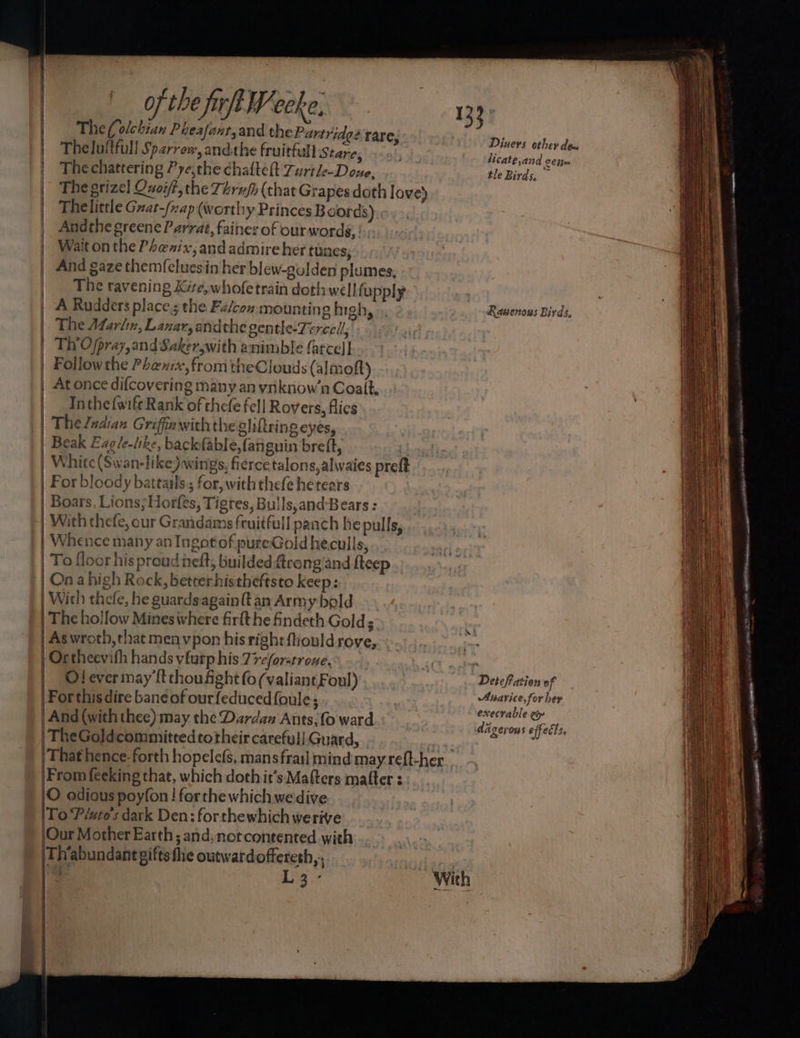 of the firſt Weeke. 133
The Colchian Pheaſant, and the Partridge rare,
The luſtfull Sparrow, and the fruitfull Stare,
The chattering Pye, the chaſteſt Turtle-Doue,
The grizel Quoiſt, the Thruſh (that Grapes doth love)
The little Gnat-ſnap (worthy Princes Boords)
And the greene Parrat, fainer of our words,
Wait on the Phœnix, and admire her tunes,
And gaze themſelues in her blew-golden plumes.
The ravening Kite, whoſe train doth well ſupply
A Rudders place; the Falcon mounting high,
The Marlin, Lanar, and the gentle-Tercell,
Th'Oſpray, and Saker, with a nimble ſarcell
Follow the Phœnix, from the Clouds (almoſt)
At once diſcovering many an vnknow'n Coaſt.
In the ſwift Rank of theſe fell Rovers, flies
The Indian Griffin with the gliſtring eyes,
Beak Eagle-like, back ſable, ſanguin breſt,
White (Swan-like) wings, fierce talons, alwaies preſt
For bloody battails; for, with theſe he tears
Boars, Lions, Horſes, Tigres, Bulls, and Bears:
With theſe, our Grandams fruitfull panch he pulls,
Whence many an Ingot of pure Gold he culls,
To floor his proud neſt, builded ſtrong and ſteep
On a high Rock, better his thefts to keep:
With theſe, he guards againſt an Army bold
The hollow Mines where firſt he findeth Gold;
As wroth, that men vpon his right ſhould rove,
Or theeviſh hands vſurp his Treſor-trove.
O! ever may'ſt thou fight ſo (valiant Foul)
For this dire bane of our ſeduced ſoule;
And (with thee) may the Dardan Ants, ſo ward
The Gold committed to their carefull Guard,
That hence-forth hopeleſs, mans frail mind may reſt-her
From ſeeking that, which doth it's Maſters maſter:
O odious poyſon! for the which we dive
To Pluto's dark Den: for the which we rive
Our Mother Earth; and, not contented with
Th'abundant gifts ſhe outward offereth,
L 3 With
Diuers other de-
licate, and gen-
tle Birds.
Rauenous Birds.
Deteſtation of
Auarice, for her
execrable &
dãgerous effects.